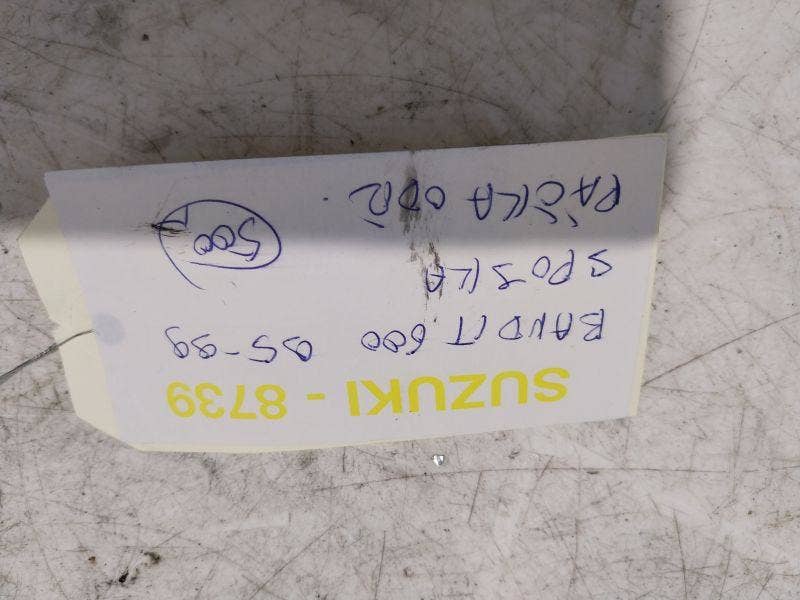 SUZUKI - 8739
BANDIT 600 95-99
SPOJKA
PÁČKA ODŘ.
500